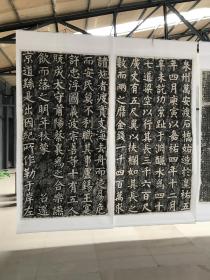 泉州萬安渡石橋始造於皇祐五
年四月庚寅以嘉祐四年十二月
辛未訖功絫趾于淵釃水為四十
七道梁空以行其長三千六百尺
廣丈有五尺翼以扶欄如其長之
數而兩之靡金錢一千四百萬求
諸施者渡實支海去舟而徒易危
而安民莫不利職其事盧錫王寔
許忠浮圖義波宗善等十有五人
既成太守莆陽蔡襄為之合樂讌
飲而落之明年秋蒙召還
京道繇是出因紀所作勒于岸左